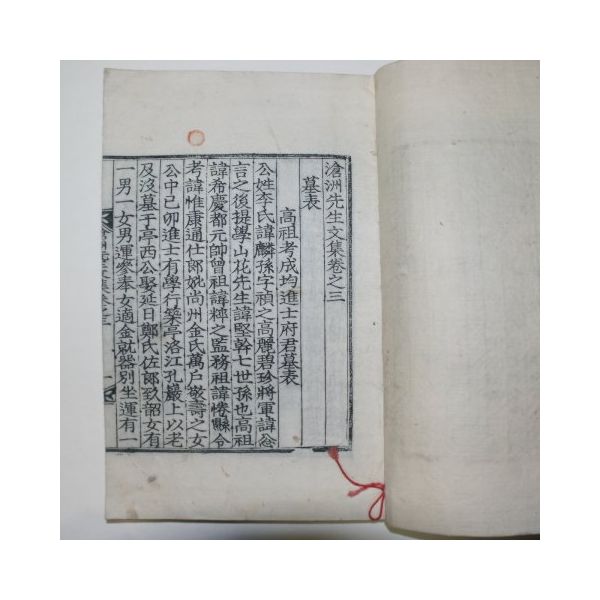 滄洲先生文集卷之三
墓表
高祖考成均進士府君墓表
公姓李氏諱麟孫字禎之高麗碧珍將軍諱忩
言之後提學山花先生諱堅幹七世孫也高祖
諱希慶都元帥曾祖諱粹之監務祖諱惓縣令
考諱惟康通仕郞妣尚州金氏萬戶敬壽之女
公中己卯進士有學行築亭洛江孔巖上以老
及沒墓于亭西公娶延日鄭氏佐郞致韶女有
一男一女男運參奉女適金就器別坐運有一